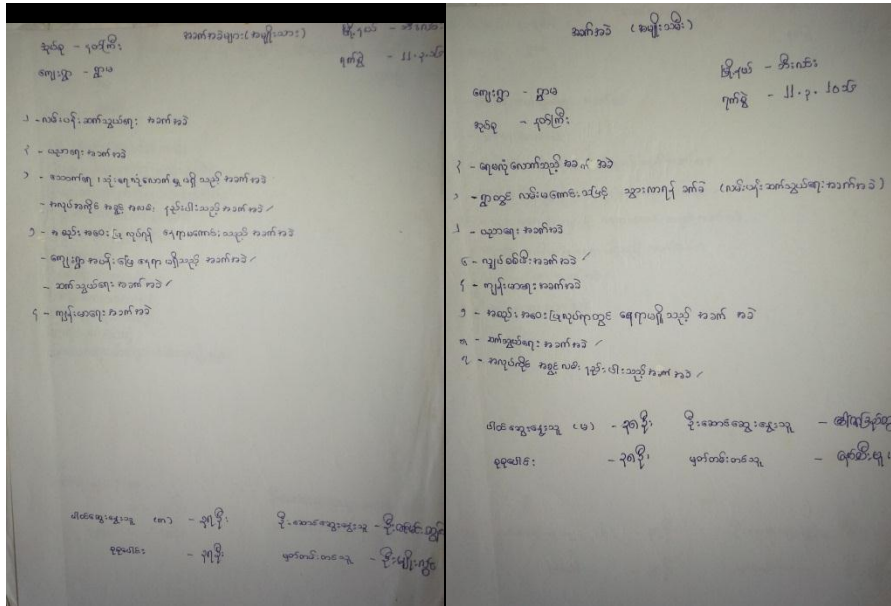 အခက်အခဲများ (အမျိုးသား)
အုပ်စု - နတ်ကြီး
ကျေးရွာ - ရွာမ
ရက်စွဲ - 11.
၁ - လမ်းပန်းဆက်သွယ်ရေး အခက်အခဲ
၂ - ပညာရေး အခက်အခဲ
၃ - သောက်ရေ၊ သုံးရေလုံလောက်မှုမရှိသည့် အခက်အခဲ
- အလုပ်အကိုင် အခွင့်အလမ်း နည်းပါးသည့် အခက်အခဲ ✓
၅ - အစည်းအဝေးပြုလုပ်ရန် နေရာမကောင်းသည့် အခက်အခဲ
- ကျေးရွာ အပန်းဖြေ နေရာ မရှိသည့် အခက်အခဲ ✓
- ဆက်သွယ်ရေး အခက်အခဲ ✓
၄ - ကျန်းမာရေး အခက်အခဲ
ပါဝင်ဆွေးနွေးသူ (ကျား) ဦး ဦးဆောင်ဆွေးနွေးသူ
စုစုပေါင်း ဦး မှတ်တမ်းတင်သူ
အခက်အခဲ (အမျိုးသမီး)
ကျေးရွာ - ရွာမ
မြို့နယ် - ဘီးလင်း
အုပ်စု - နတ်ကြီး
ရက်စွဲ - 11.
၂ - ရေမလုံလောက်သည့် အခက်အခဲ
၃ - ရွာတွင် လမ်းမကောင်းသဖြင့် သွားလာရန် ခက်ခဲ (လမ်းပန်းဆက်သွယ်ရေး အခက်အခဲ)
၁ - ပညာရေး အခက်အခဲ
၆ - လျှပ်စစ်မီး အခက်အခဲ ✓
၄ - ကျန်းမာရေး အခက်အခဲ
၅ - အစည်းအဝေးပြုလုပ်ရာတွင် နေရာမရှိသည့် အခက်အခဲ
၈ - ဆက်သွယ်ရေး အခက်အခဲ ✓
၇ - အလုပ်ကိုင် အခွင့်လမ်း နည်းပါးသည့် အခက်အခဲ ✓
ပါဝင်ဆွေးနွေးသူ (မ) ဦး ဦးဆောင်ဆွေးနွေးသူ
စုစုပေါင်း ဦး မှတ်တမ်းတင်သူ